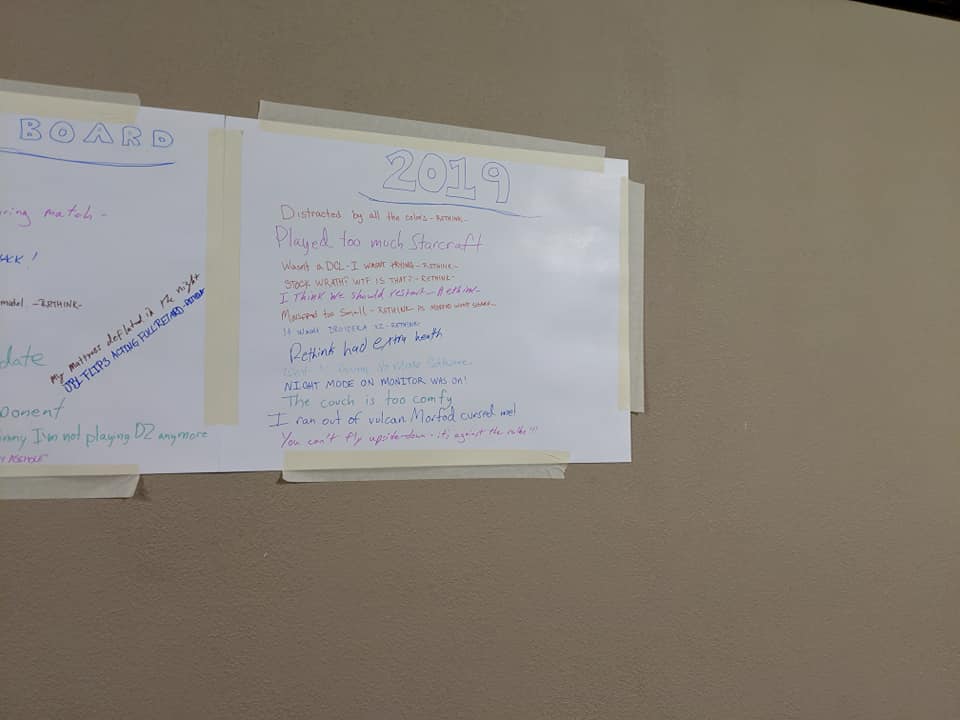 BOARD
ring match-
!
-RETHINK-
My mattress deflated in the night
FLIPS ACTING FULL RETARD-RETHINK
date
ponent
I'm not playing D2 anymore
ASSHOLE
2019
Distracted by all the colors-RETHINK-
Played too much Starcraft
Wasnt a DCL-I WASNT TRYING-RETHINK-
STOCK WRATH? WTF IS THAT?-RETHINK-
I Think we should restart-Rethink-
too Small-RETHINK IS
It wasnt XL-RETHINK-
Rethink had extra health
NIGHT MODE ON MONITOR WAS ON!
The couch is too comfy
I ran out of vulcan Morfod cursed me!
You can't fly upside-down-it's against the rules!!!